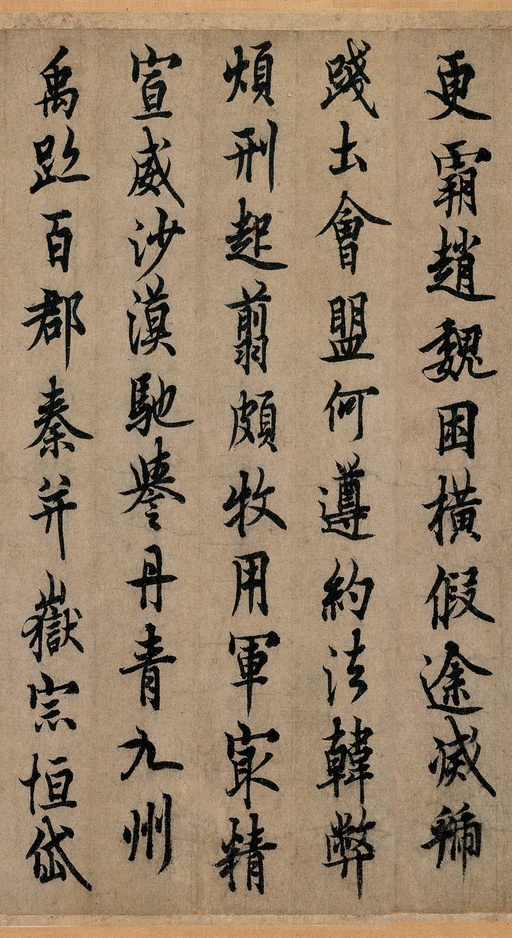 更霸趙魏困橫假途滅虢
踐土會盟何遵約法韓弊
煩刑起翦頗牧用軍㝡精
宣威沙漠馳譽丹青九州
禹跡百郡秦并嶽宗恒岱